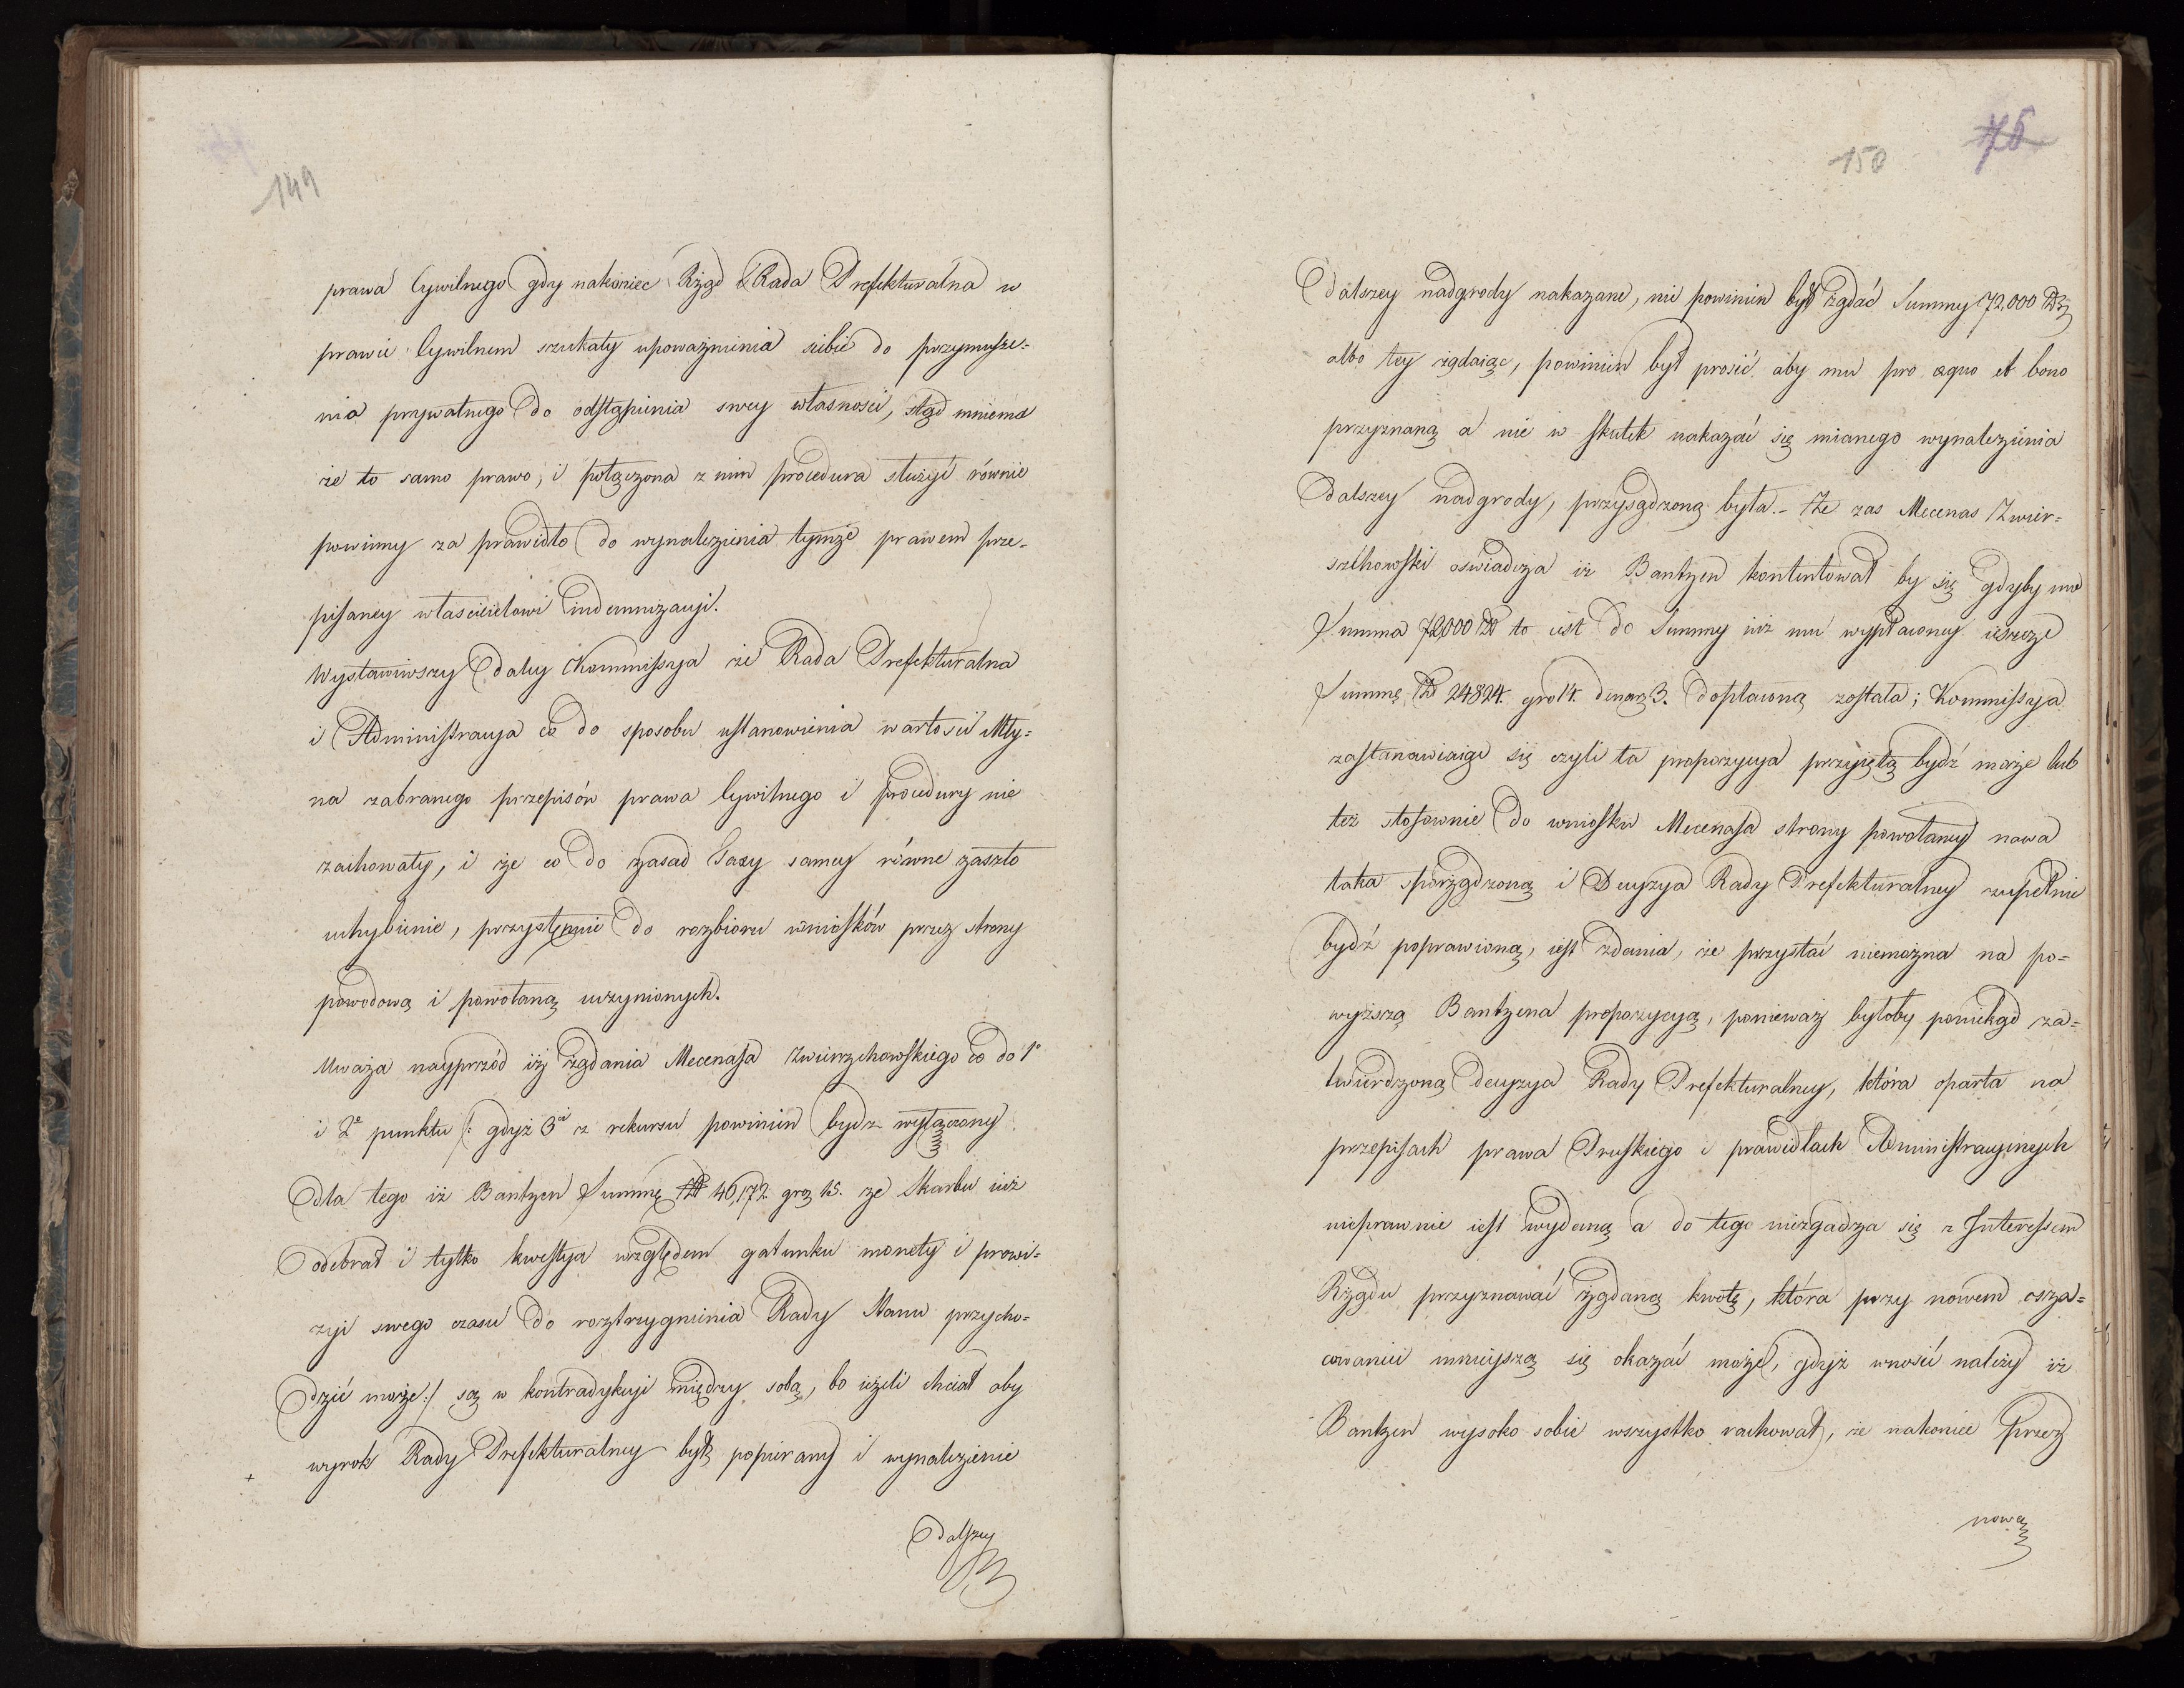 149
prawa Cywilnego gdy nakoniec Rząd i Rada Prefekturalna w
prawie Cywilnem szukały upoważnienia siebie do przymusze-
nia prywatnego do odstąpienia swey własności, stąd mniema
że to samo prawo, i połączona z nim procedura służyć równie
powinny za prawidło do wynalezienia tymże prawem prze-
pisaney właścicielowi indemnizacyi.
Wystawiwszy daley Kommissya że Rada Prefekturalna
i Administracya co do sposobu ustanowienia wartości Mły-
na zabranego przepisów prawa Cywilnego i procedury nie
zachowały, i że co do zasad Taxy samey równe zaszło
uchybienie, przystępuie do rozbioru wniosków przez strony
powodową i powołaną uczynionych.
Uważa nayprzód iż żądania Mecenasa Zwierzchowskiego co do 1o
i 2o punktu /: gdyż 3ci z rekursu powinien bydz wyłączony
dla tego iż Bantzen Summę Zł 46,172 gro 15. ze Skarbu iuż
odebrał i tylko kwestya względem gatunku monety i prowi-
zyi swego czasu do roztrzygnienia Rady Stanu przycho-
dzić może :/ są w kontradykcyi między sobą, bo ieżeli chciał aby
wyrok Rady Prefekturalney był popierany i wynalezienie
dalszey
150
75
dalszey nadgrody nakazane, nie powinien był żądać Summy 72,000 Zł
albo tey żądaiąc, powinien był prosić aby mu pro aequo et bono
przyznaną a nie w skutek nakazać się mianego wynalezienia
dalszey nadgrody, przysądzoną była. - Że zas Mecenas Zwier-
zchowski oświadcza iż Bantzen kontentował by się gdyby mu
Summa 72,000 Zł to iest do Summy iuż mu wypłaconey ieszcze
Summę Zł 24824. gro 14. denar 3. dopłaconą została; Kommissya
zastanawiaiąc się czyli ta propozycya przyiętą bydź może lub
też stosownie do wniosku Mecenasa strony powołaney nowa
taka sporządzoną i Decyzya Rady Prefekturalney zupełnie
bydź poprawioną, iest zdania, że przystać niemożna na po-
wyższą Bantzena propozycyą, ponieważ byłoby poniekąd za-
twierdzoną decyzya Rady Prefekturalney, która oparta na
przepisach prawa Pruskiego i prawidłach Administracyinych
nieprawnie iest wydaną a do tego niezgadza się z Interessem
Rządu przyznawać żądaną kwotę, która przy nowem osza-
cowaniu mnieyszą się okazać może, gdyż wnosić należy iż
Bantzen wysoko sobie wszystko rachował, że nakoniec przez
nową